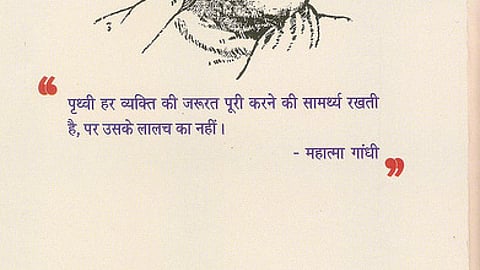 “ पृथ्वी हर व्यक्ति की जरूरत पूरी करने की सामर्थ्य रखती
है, पर उसके लालच का नहीं।
- महात्मा गांधी ”